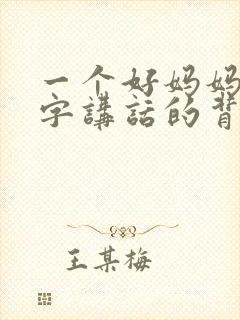 一个好妈妈
字講話的背
王某梅